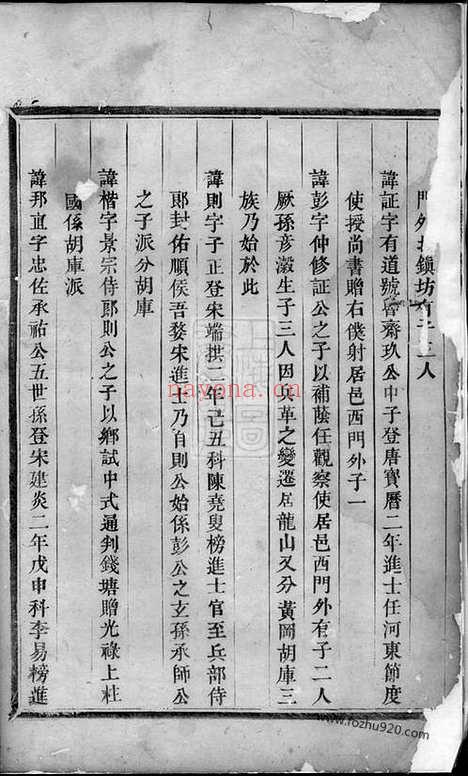 門外 鎮坊有子三人
諱証字有道號魯齋玖公中子登唐寶曆二年進士任河東節度
使授尚書贈右僕射居邑西門外子一
諱彭字仲修証公之子以補蔭任觀察使居邑西門外有子二人
厥孫彥澂生子三人因兵革之變遷居龍山又分黃岡胡庫三
族乃始於此
諱則字子正登宋端拱二年己丑科陳堯叟榜進士官至兵部侍
郎封佑順侯吾婺宋進士乃自則公始係彭公之玄孫承師公
之子派分胡庫
諱楷字景宗侍郎則公之子以鄉試中式通判錢塘贈光祿上柱
國係胡庫派
諱邦直字忠佐承祐公五世孫登宋建炎二年戊申科李易榜進
nayona.cn
www.fozhu920.com